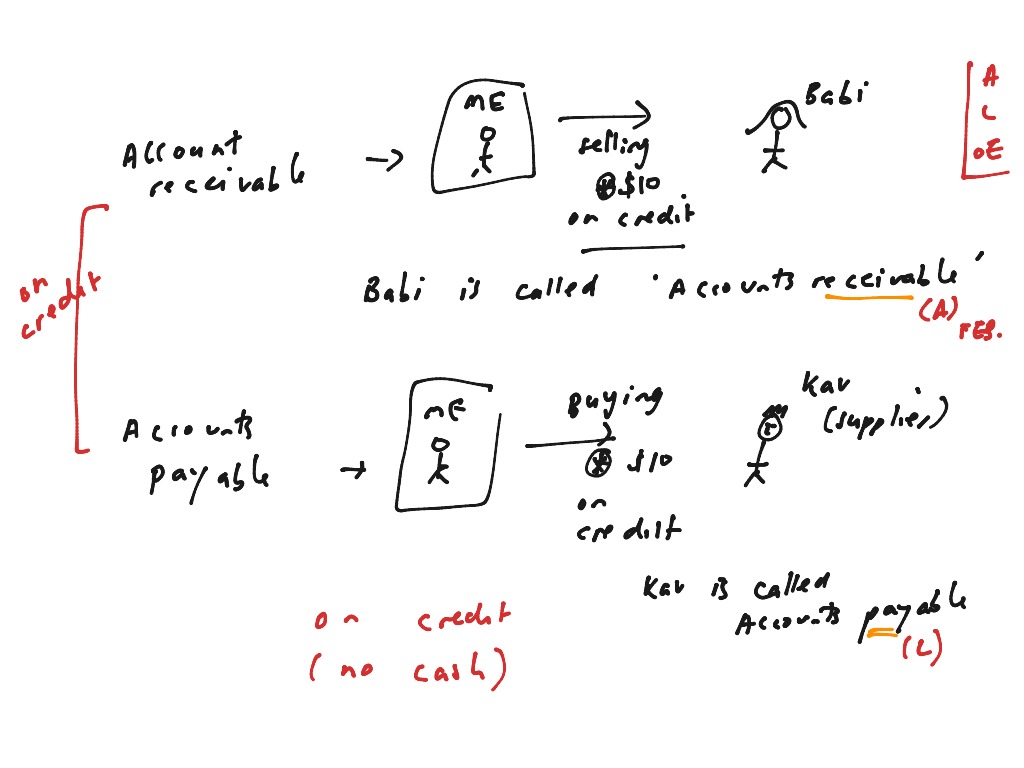 ME
Babi
A
L
OE
Account
receivable
selling
$10
on credit
on
credit
Babi is called 'Accounts receivable'
(A)
ME
Buying
Kav
(supplier)
Accounts
payable
$10
on
credit
Kav is called
Accounts payable
(L)
on credit
(no cash)